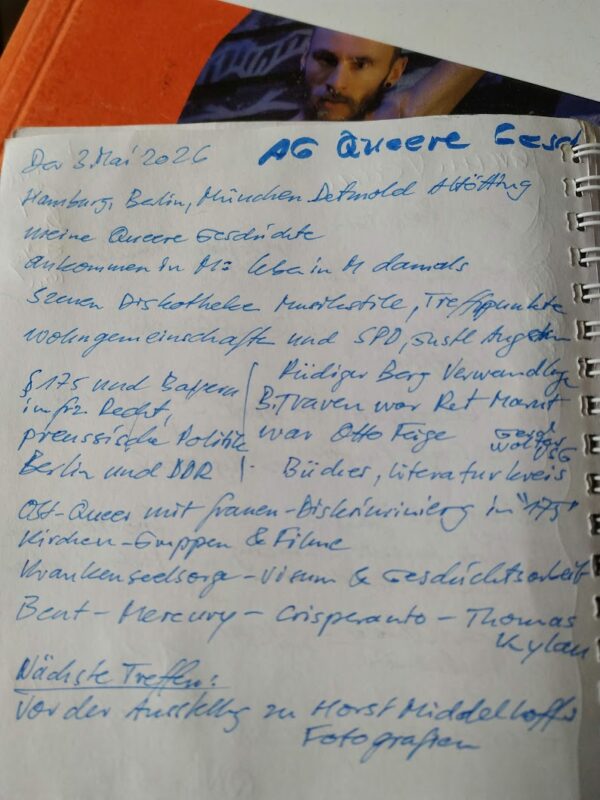 Der 3. Mai 2026
AG Queere Gesch
Hamburg, Berlin, München, Detmold Altötting
meine Queere Geschichte
ankommen in M: leben in M damals
Szenen Diskotheke Musikstile, Treffpunkte
Wohngemeinschafte und SPD,
§ 175 und Bayern
im frz. Recht,
preussische Politik
Berlin und DDR !
Rüdiger Berg Verwandlg
B. Traven war Ret Marut
war Otto Feige
Bücher, Literaturkreis
Ost-Queer mit Frauen-Diskriminierg in "175"
Kirchen-Gruppen & Filme
Krankenseelsorge - Visum & Geschichtsarbeit
Bent - Mercury - Crisperanto - Thomas
Kylau
Nächste Treffen:
Vor der Ausstellg zu Horst Middelhoffs
Fotografien